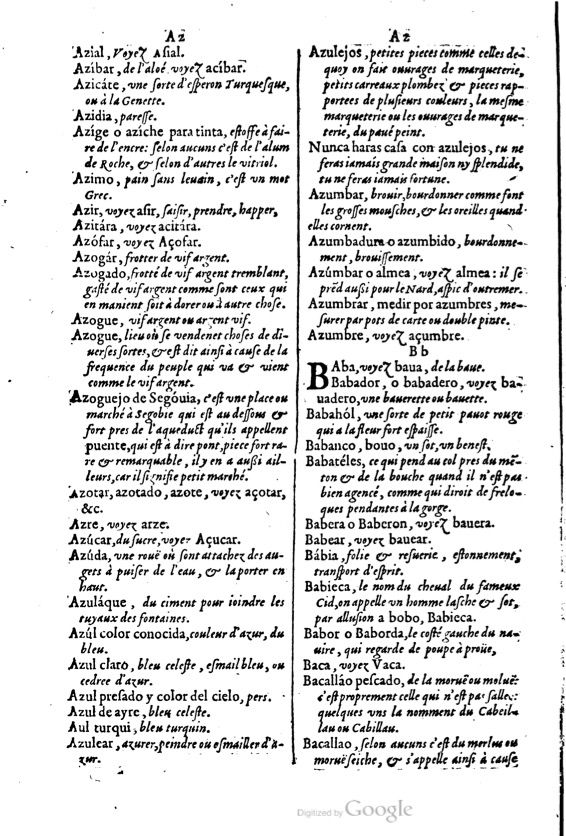 Az
Azial, Voyez Asial.
Azíbar, de l'aloé voyez acíbar.
Azicáte, vne sorte d'esperon Turquesque,
ou à la Genette.
Azidia, paresse.
Azíge o aziche para tinta, estoffe à fai-
re de l'encre: selon aucuns c'est de l'alum
de Roche, & selon d'autres le vitriol.
Azimo, pain sans leuain, c'est vn mot
Grec.
Azir, voyez asir, saisir, prendre, happer,
Azitára, voyez acitára.
Azófar, voyez Açofar.
Azogár, frotter de vif argent.
Azogado, frotté de vif argent tremblant,
gasté de vif argent comme sont ceux qui
en manient soit à dorer ou à autre chose.
Azogue, vif argent ou argent vif.
Azogue, lieu où se vendenet choses de di-
uerses sortes, & est dit ainsi à cause de la
frequence du peuple qui va & vient
comme le vif argent.
Azoguejo de Segóuia, c'est vne place ou
marché à Segobie qui est au dessous &
fort pres de l'aqueduct qu'ils appellent
puente, qui est à dire pont, piece fort ra-
re & remarquable, il y en a aussi ail-
leurs, car il signifie petit marché.
Azotar, azotado, azote, voyez açotar,
&c.
Azre, voyez arze.
Azúcar, du sucre, voyez Açucar.
Azúda, vne rouë où sont attachez des au-
gets à puiser de l'eau, & la porter en
haut.
Azuláque, du ciment pour ioindre les
tuyaux des fontaines.
Azúl color conocida, couleur d'azur, du
bleu.
Azul claro, bleu celeste, esmail bleu, ou
cedree d'azur.
Azul presado y color del cielo, pers.
Azul de ayre, bleu celeste.
Aul turqui, bleu turquin.
Azulear, azurer, peindre ou esmailler d'a-
zur.
Az
Azulejos, petites pieces comme celles de-
quoy on fait ouurages de marqueterie,
petits carreaux plombez & pieces rap-
portees de plusieurs couleurs, la mesme
marqueterie ou les ouurages de marque-
terie, du paué peint.
Nunca haras casa con azulejos, tu ne
feras iamais grande maison ny splendide,
tu ne feras iamais fortune.
Azumbar, brouir, bourdonner comme font
les grosses mousches, & les oreilles quand
elles cornent.
Azumbadura o azumbido, bourdonne-
ment, brouissement.
Azúmbar o almea, voyez almea: il se
prēd aussi pour le Nard, aspic d'outremer.
Azumbrar, medir por azumbres, me-
surer par pots de carte ou double pinte.
Azumbre, voyez açumbre.
B b
BAba, voyez baua, de la baue.
Babador, o babadero, voyez ba-
uadero, vne bauerette ou bauette.
Babahól, vne sorte de petit pauot rouge
qui a la fleur fort espaisse.
Babanco, bouo, vn sot, vn benest.
Babatéles, ce qui pend au col pres du mē-
ton & de la bouche quand il n'est pas
bien agencé, comme qui diroit de frelo-
ques pendantes à la gorge.
Babera o Baberon, voyez bauera.
Babear, voyez bauear.
Bábia, folie & resuerie, estonnement,
transport d'esprit.
Babieca, le nom du cheual du fameux
Cid, on appelle vn homme lasche & sot,
par allusion a bobo, Babieca.
Babor o Baborda, le costé gauche du na-
uire, qui regarde de poupe à prouë,
Baca, voyez Vaca.
Bacalláo pescado, de la moruë ou moluë:
c'est proprement celle qui n'est pas sallee:
quelques vns la nomment du Cabeil-
lau ou Cabillau.
Bacallao, selon aucuns c'est du merlus ou
moruë seiche, & s'appelle ainsi à cause
Digitized by Google